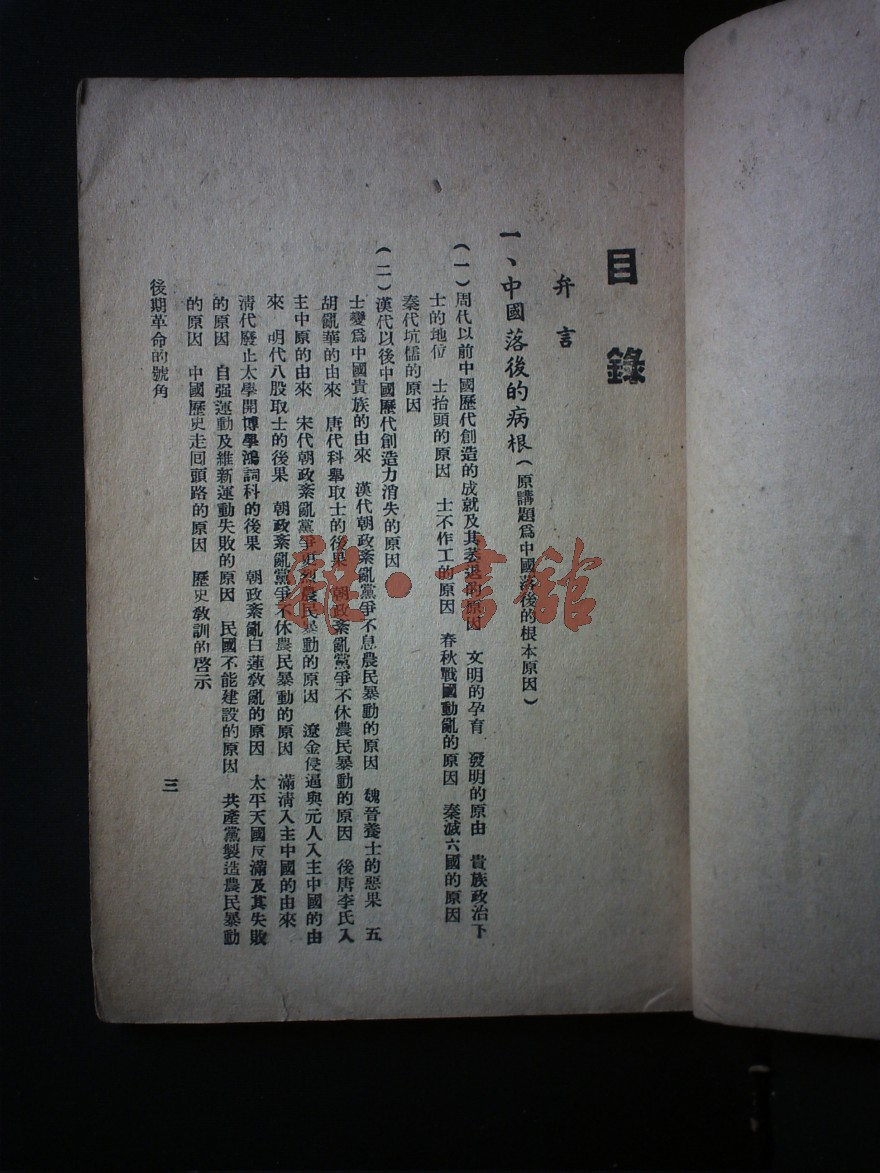 目錄
弁言
一、中國落後的病根(原講題爲中國落後的根本原因)
(一)周代以前中國歷代創造的成就及其萎退的原因 文明的孕育 發明的原由 貴族政治下
士的地位 士抬頭的原因 士不作工的原因 春秋戰國動亂的原因 秦滅六國的原因
秦代坑儒的原因
(二)漢代以後中國歷代創造力消失的原因
士變爲中國貴族的由來 漢代朝政紊亂黨爭不息農民暴動的原因 魏晉養士的惡果 五
胡亂華的由來 唐代科舉取士的後果 朝政紊亂黨爭不休農民暴動的原因 後唐李氏入
主中原的由來 宋代朝政紊亂黨爭更烈農民暴動的原因 遼金侵逼與元人入主中國的由
來 明代八股取士的後果 朝政紊亂黨爭不休農民暴動的原因 滿清入主中國的由來
清代廢止太學開博學鴻詞科的後果 朝政紊亂白蓮敎亂的原因 太平天國反滿及其失敗
的原因 自强運動及維新運動失敗的原因 民國不能建設的原因 共產黨製造農民暴動
的原因 中國歷史走回頭路的原因 歷史敎訓的啓示
後期革命的號角
三
雜·書館